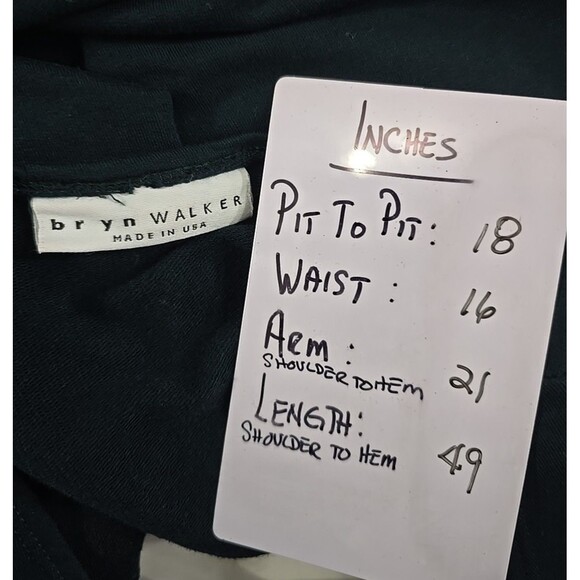 bryn WALKER
MADE IN USA
INCHES
PIT TO PIT: 18
WAIST: 16
ARM:
SHOULDER TO HEM 21
LENGTH:
SHOULDER TO HEM 49